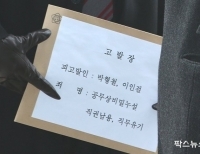 고 발 장
피고발인 : 박형철, 이인걸
죄 명 : 공무상비밀누설
직권남용, 직무유기
팍스뉴스